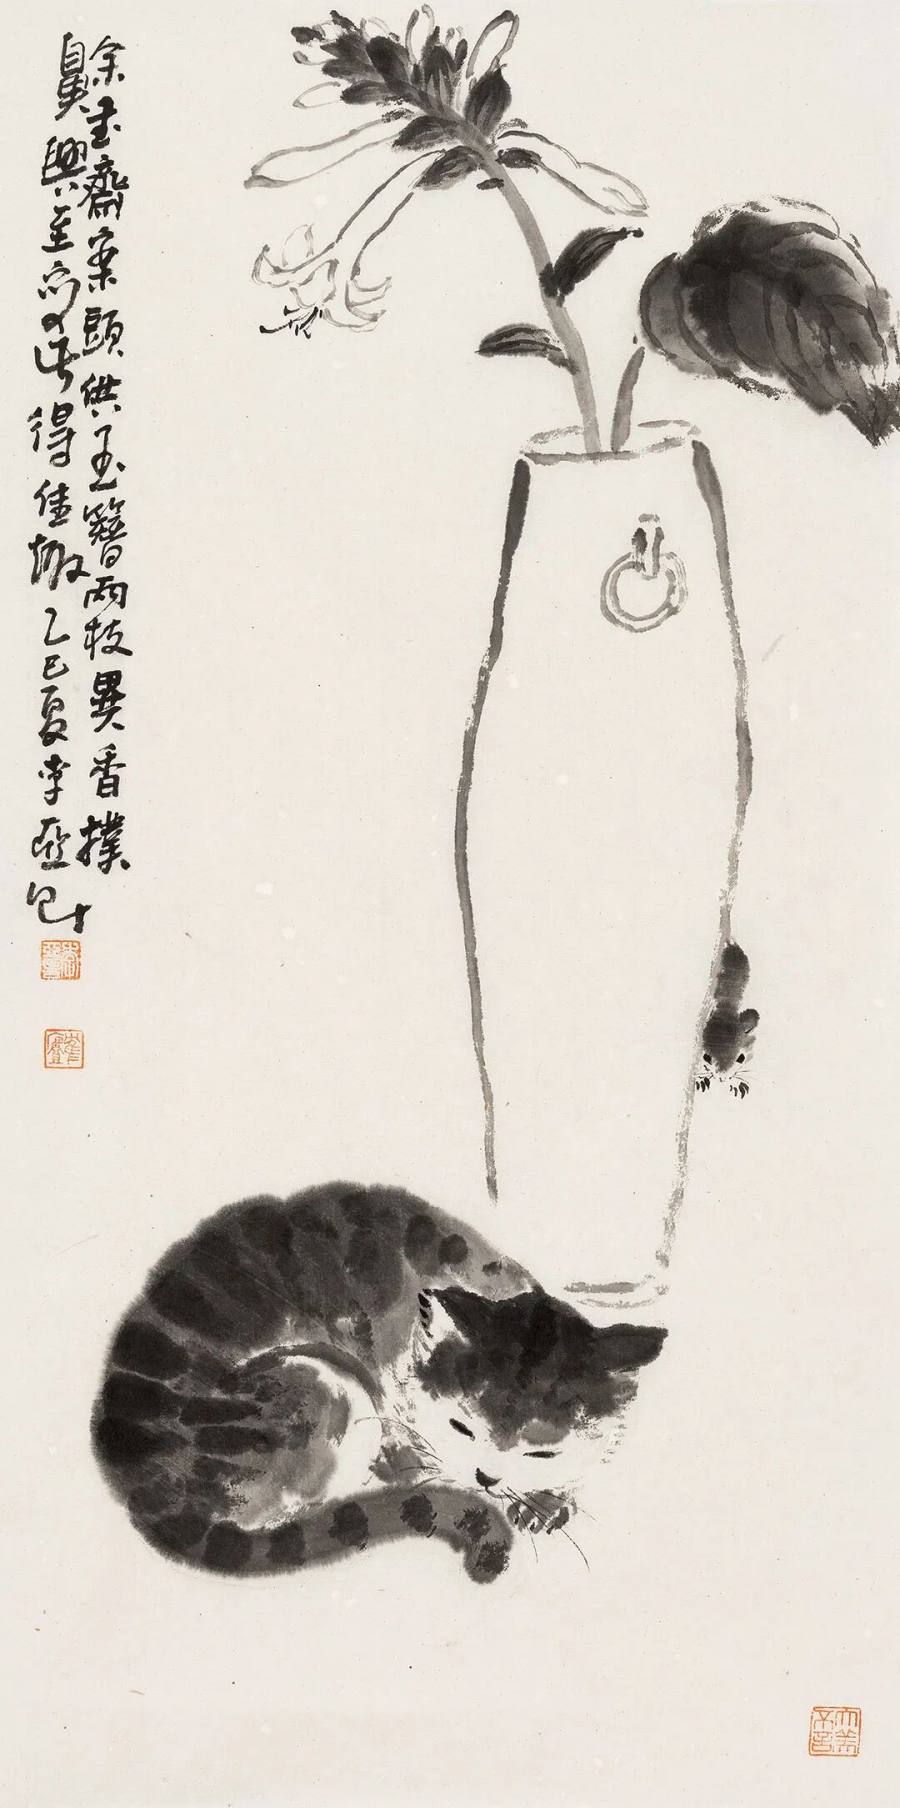 余書齋案頭供玉簪兩枝異香撲
鼻興至寫此得佳趣乙巳夏李亞
大美不言